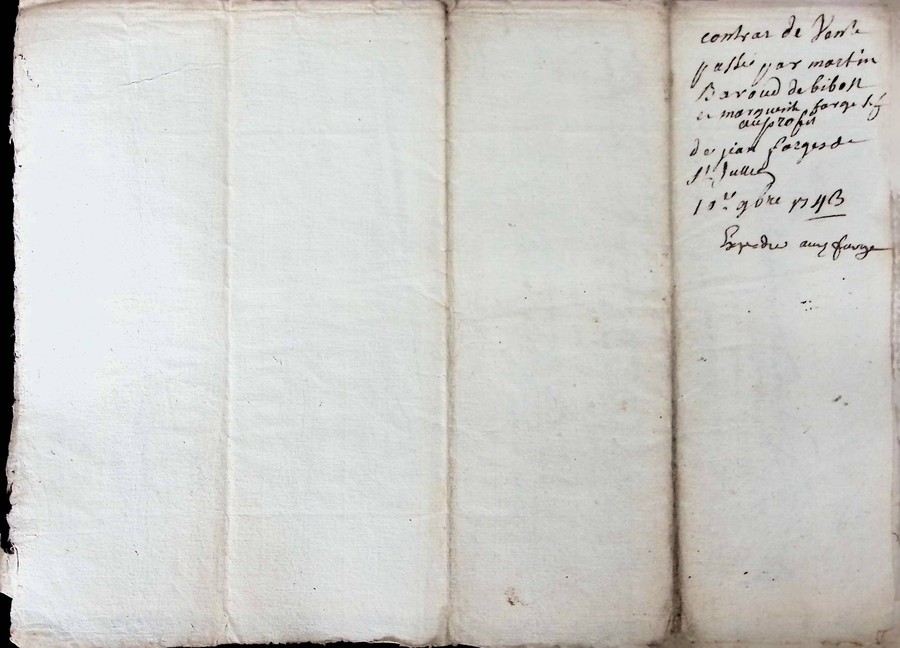 contrat de Vente
passé par martin
Baroud de bibost
et marguerite farge
au profit
de jean farges de
St Jullien
10 9bre 1743
Expedie aux farge